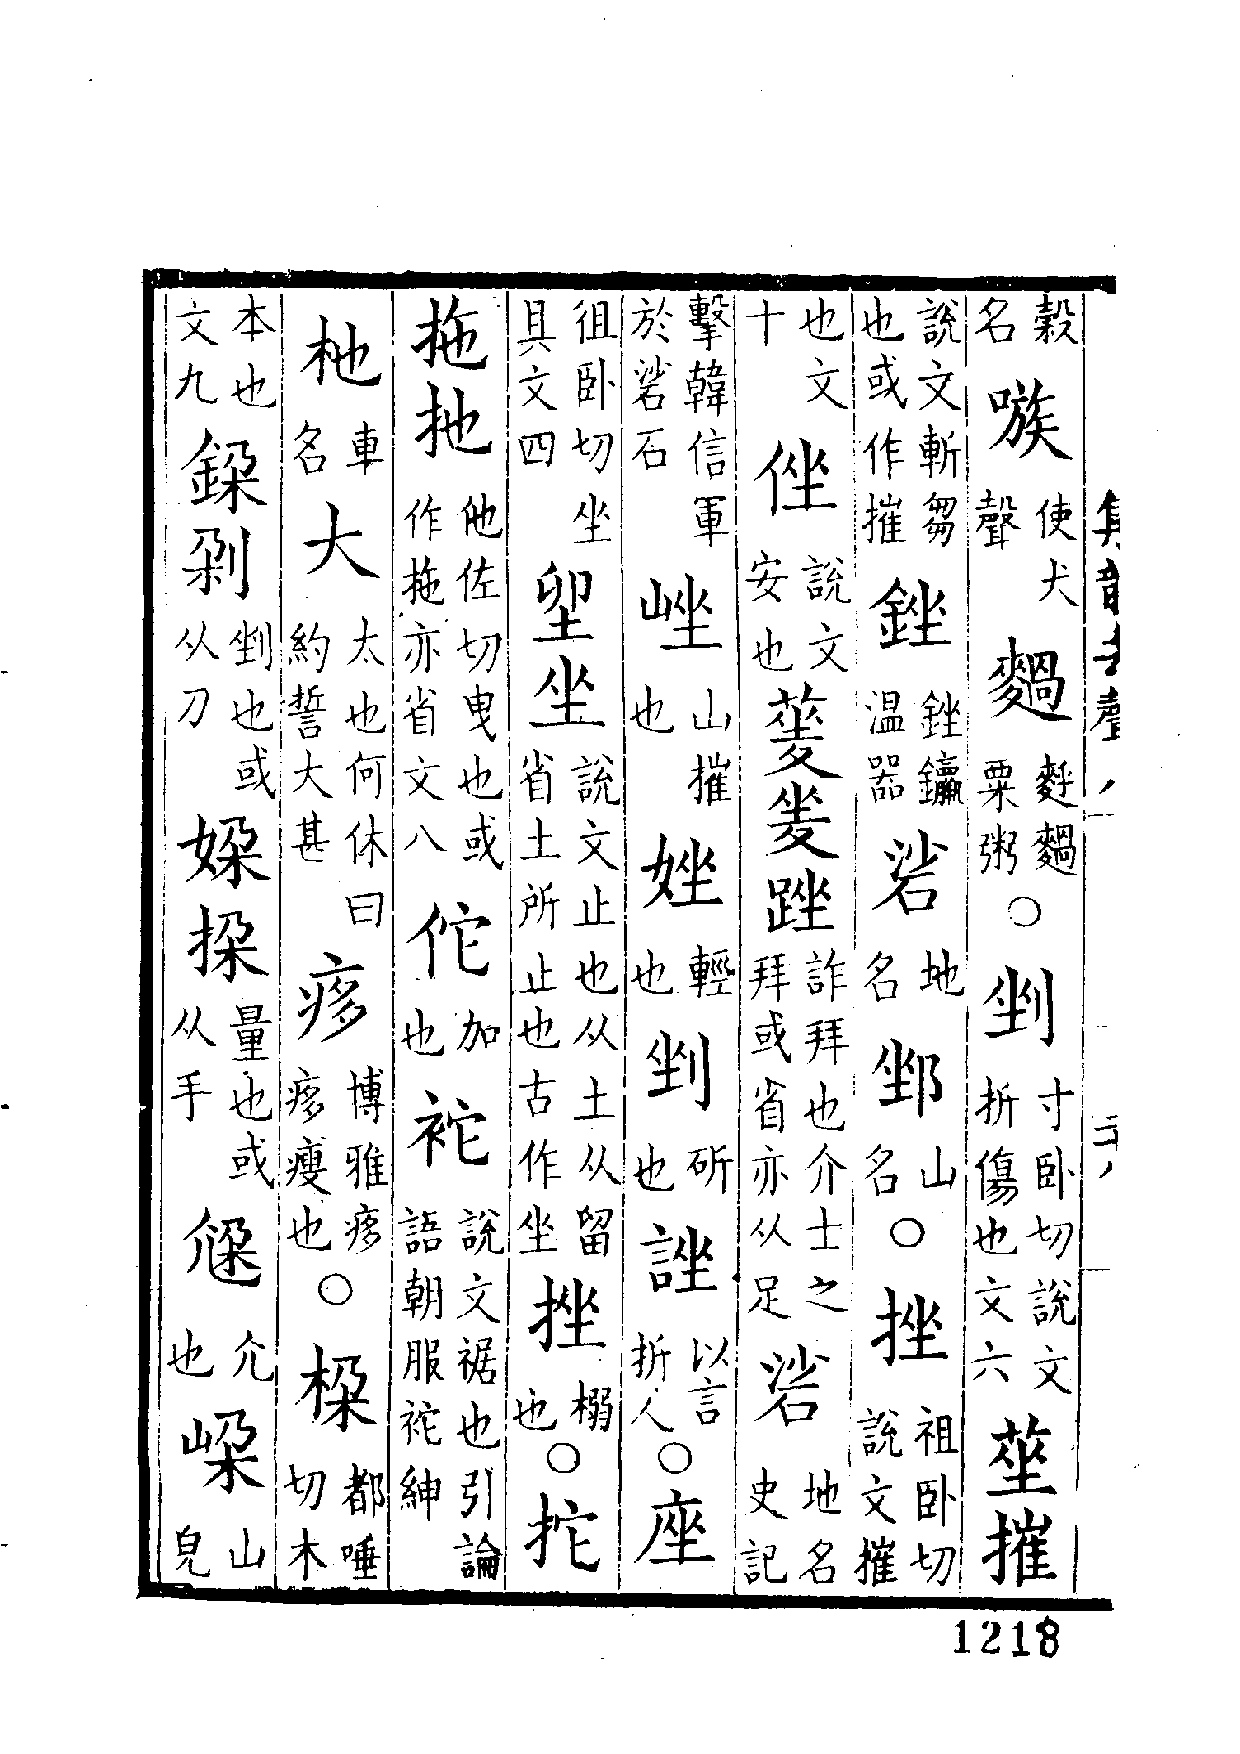 穀名嗾使犬聲䵷麩䵷粟粥○剉寸卧切說文折傷也文六莝摧
說文斬芻也或作摧銼銼鑹温器硰地名䣛山名○挫祖卧切說文摧
也文十侳說文安也蓌夎踤詐拜也介士之拜或省亦从足硰地名史記
擊韓信軍於硰石㘸山摧也㛗輕也剉斫也䛗以言折人○座
徂卧切坐具文四㘴坐說文止也从土从留省土所止也古作坐挫搦也○拕
拖扡他佐切曳也或作拖亦省文八佗加也袉說文裾也引論語朝服袉紳
杝車名大太也何休曰約誓大甚痑博雅痑痑瘦也○椯都唾切木
本也文九鏁剁剉也或从刀媣挅量也或从手㞆尣也㟎山皃
集韻去聲八
二八
1218